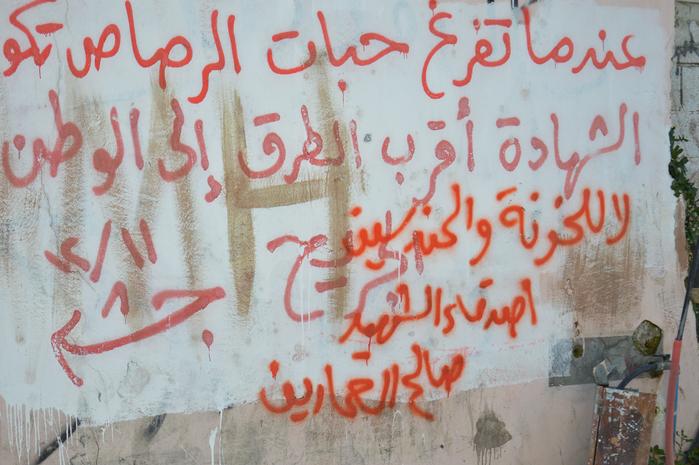 عندما تفرغ حبات الرصاص تكو
الشهادة أقرب الطرق إلى الوطن
لا للخونة
اصدقاء الشهيد
صالح العمارين